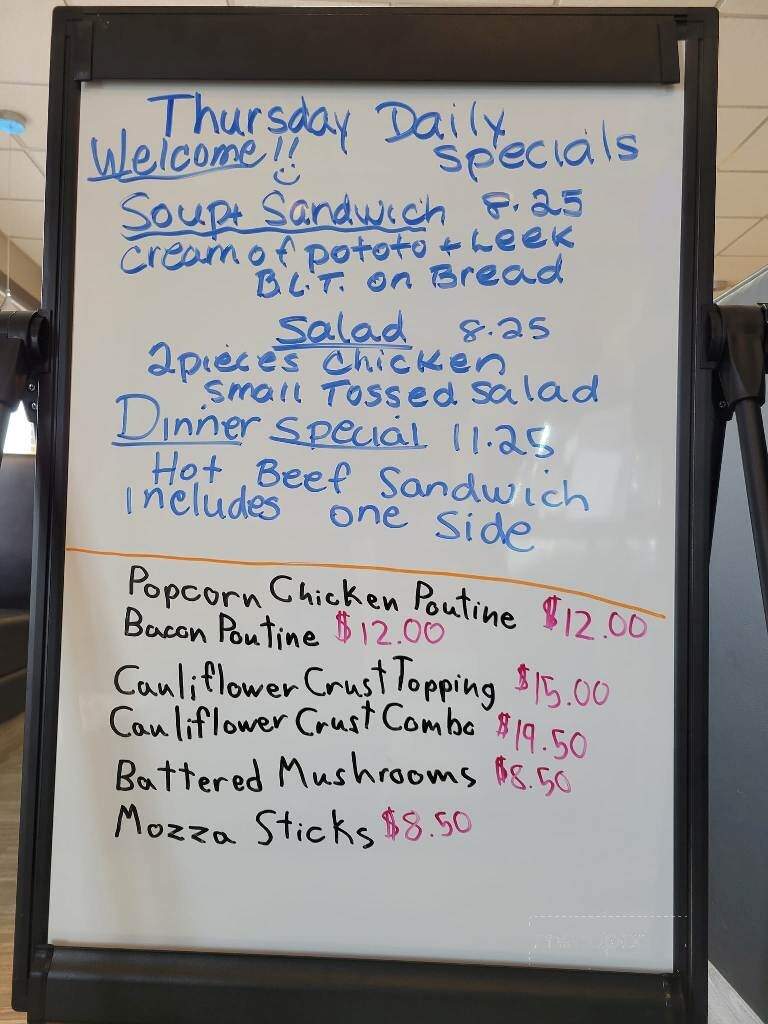 Thursday Daily
Welcome!! specials
Soup+ Sandwich 8.25
cream of pototo + Leek
B.L.T. on Bread
Salad 8.25
2 pieces chicken
small Tossed salad
Dinner special 11.25
Hot Beef Sandwich
includes one side
Popcorn Chicken Poutine $12.00
Bacon Poutine $12.00
Cauliflower Crust Topping $15.00
Cauliflower Crust Combo $19.50
Battered Mushrooms $8.50
Mozza Sticks $8.50